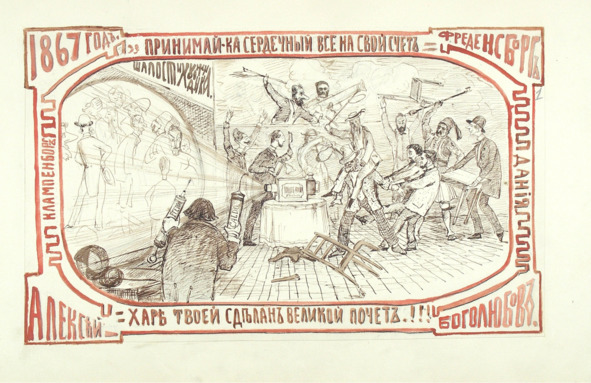 1867 годъ.
Принимай-ка сердечный все на свой счетъ =
Фреденсборгъ
Шалости
Клампенборгъ
Данія
Алексѣй
= Харѣ твоей сдѣланъ великой почетъ.!!!
Боголюбовъ.